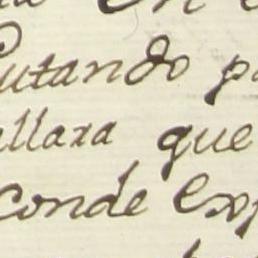 utando p
llaxa que
conde Exp